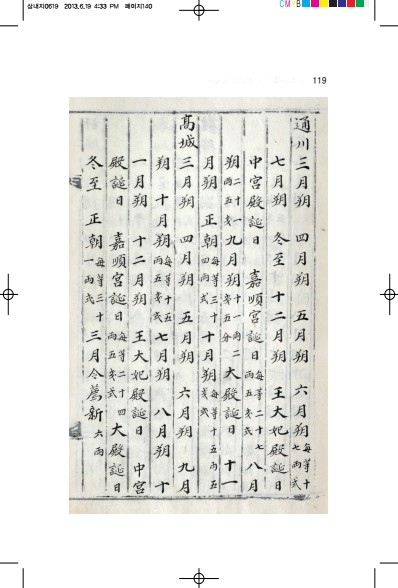 삼내지0619 2013.6.19 4:33 PM 페이지140
CMYB
119
通川三月朔 四月朔 五月朔 六月朔每等十七兩式
七月朔 冬至 十二月朔 王大妃殿誕日
中宮殿誕日 嘉順宮誕日每等二十七兩五戔式 八月
朔二十一兩五戔 九月朔十一兩二戔五分 大殿誕日 十一
月朔 正朝每等三十四兩式 十月朔每等十五兩五戔式
高城三月朔 四月朔 五月朔 六月朔 九月
朔 十月朔每等十五兩五戔式 七月朔 八月朔 十
一月朔 十二月朔 王大妃殿誕日 中宮
殿誕日 嘉順宮誕日每等二十四兩五戔式 大殿誕日
冬至 正朝每等三十一兩式 三月令薦新六兩